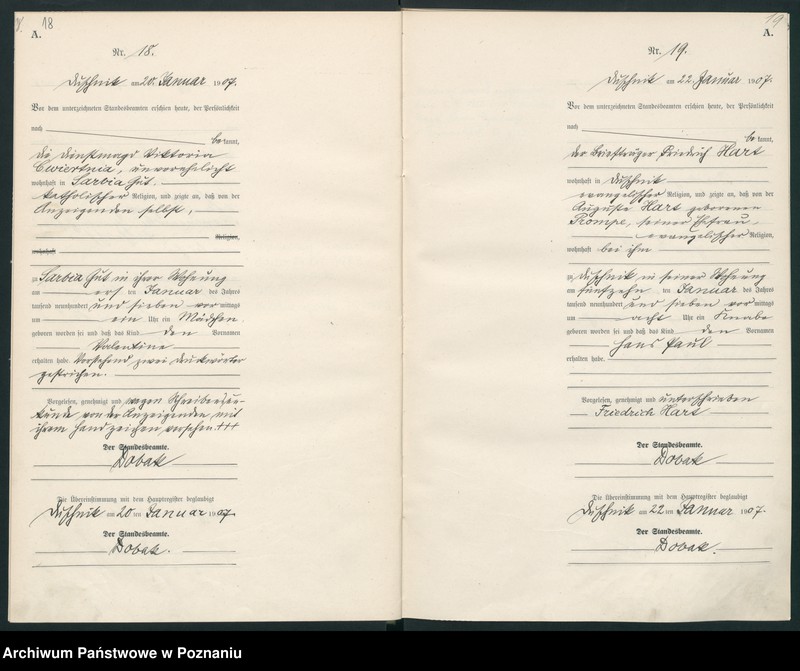 18
A.
Nr. 18.
Duschnik am 20. Januar 1907.
Vor dem unterzeichneten Standesbeamten erschien heute, der Persönlichkeit
nach
bekannt,
die Dienstmagd Viktoria
Cwiertnia, unverehelicht
wohnhaft in Sarbia Gut.
katholischer Religion, und zeigte an, daß von der
Anzeigenden selbst,
Religion,
wohnhaft
zu Sarbia Gut in ihrer Wohnung
am ersten Januar des Jahres
tausend neunhundert und sieben vormittags
um ein Uhr ein Mädchen
geboren worden sei und daß das Kind den Vornamen
Valentine
erhalten habe. Vorstehend zwei Druckwörter
gestrichen.
Vorgelesen, genehmigt und wegen Schreibensun-
kunde von der Anzeigenden mit
ihrem Handzeichen versehen. +++
Der Standesbeamte.
Dobak
Die Übereinstimmung mit dem Hauptregister beglaubigt
Duschnik am 20ten Januar 1907.
Der Standesbeamte.
Dobak.
19
A.
Nr. 19.
Duschnik am 22. Januar 1907.
Vor dem unterzeichneten Standesbeamten erschien heute, der Persönlichkeit
nach
bekannt,
der Briefträger Friedrich Hart
wohnhaft in Duschnik
evangelischer Religion, und zeigte an, daß von der
Auguste Hart geborenen
Prompe, seiner Ehefrau
evangelischer Religion,
wohnhaft bei ihm
zu Duschnik in seiner Wohnung
am fünfzehnten Januar des Jahres
tausend neunhundert und sieben vormittags
um acht Uhr ein Knabe
geboren worden sei und daß das Kind den Vornamen
Hans Paul
erhalten habe.
Vorgelesen, genehmigt und unterschrieben
Friedrich Hart
Der Standesbeamte.
Dobak
Die Übereinstimmung mit dem Hauptregister beglaubigt
Duschnik am 22ten Januar 1907.
Der Standesbeamte.
Dobak.
Archiwum Państwowe w Poznaniu